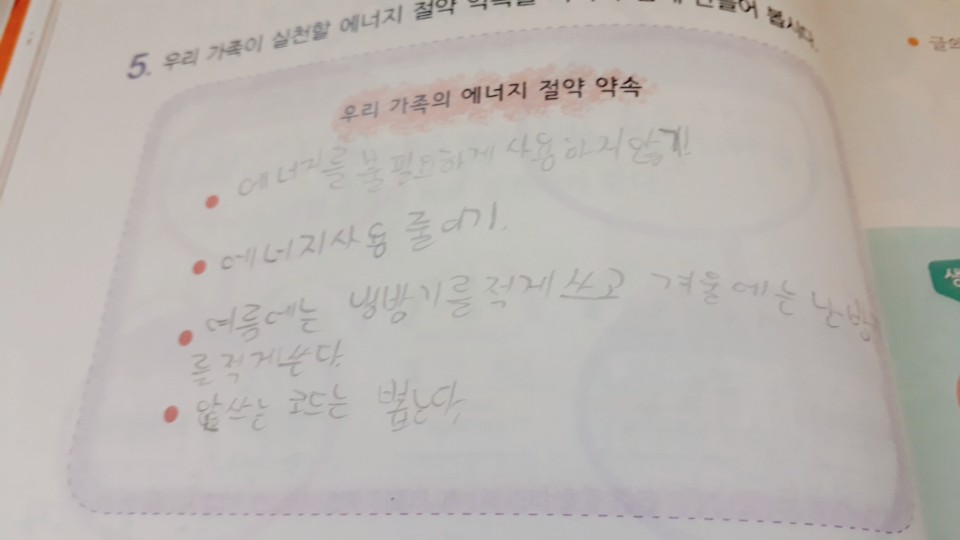 5. 우리 가족이 실천할 에너지 절약 약속을
들어 봅시다.
우리 가족의 에너지 절약 약속
에너지를 불필요하게 사용하지않기
에너지사용 줄이기.
여름에는 냉방기를 적게 쓰고 겨울에는 난방기
를 적게 쓴다.
않쓰는 코드는 뽑는다.